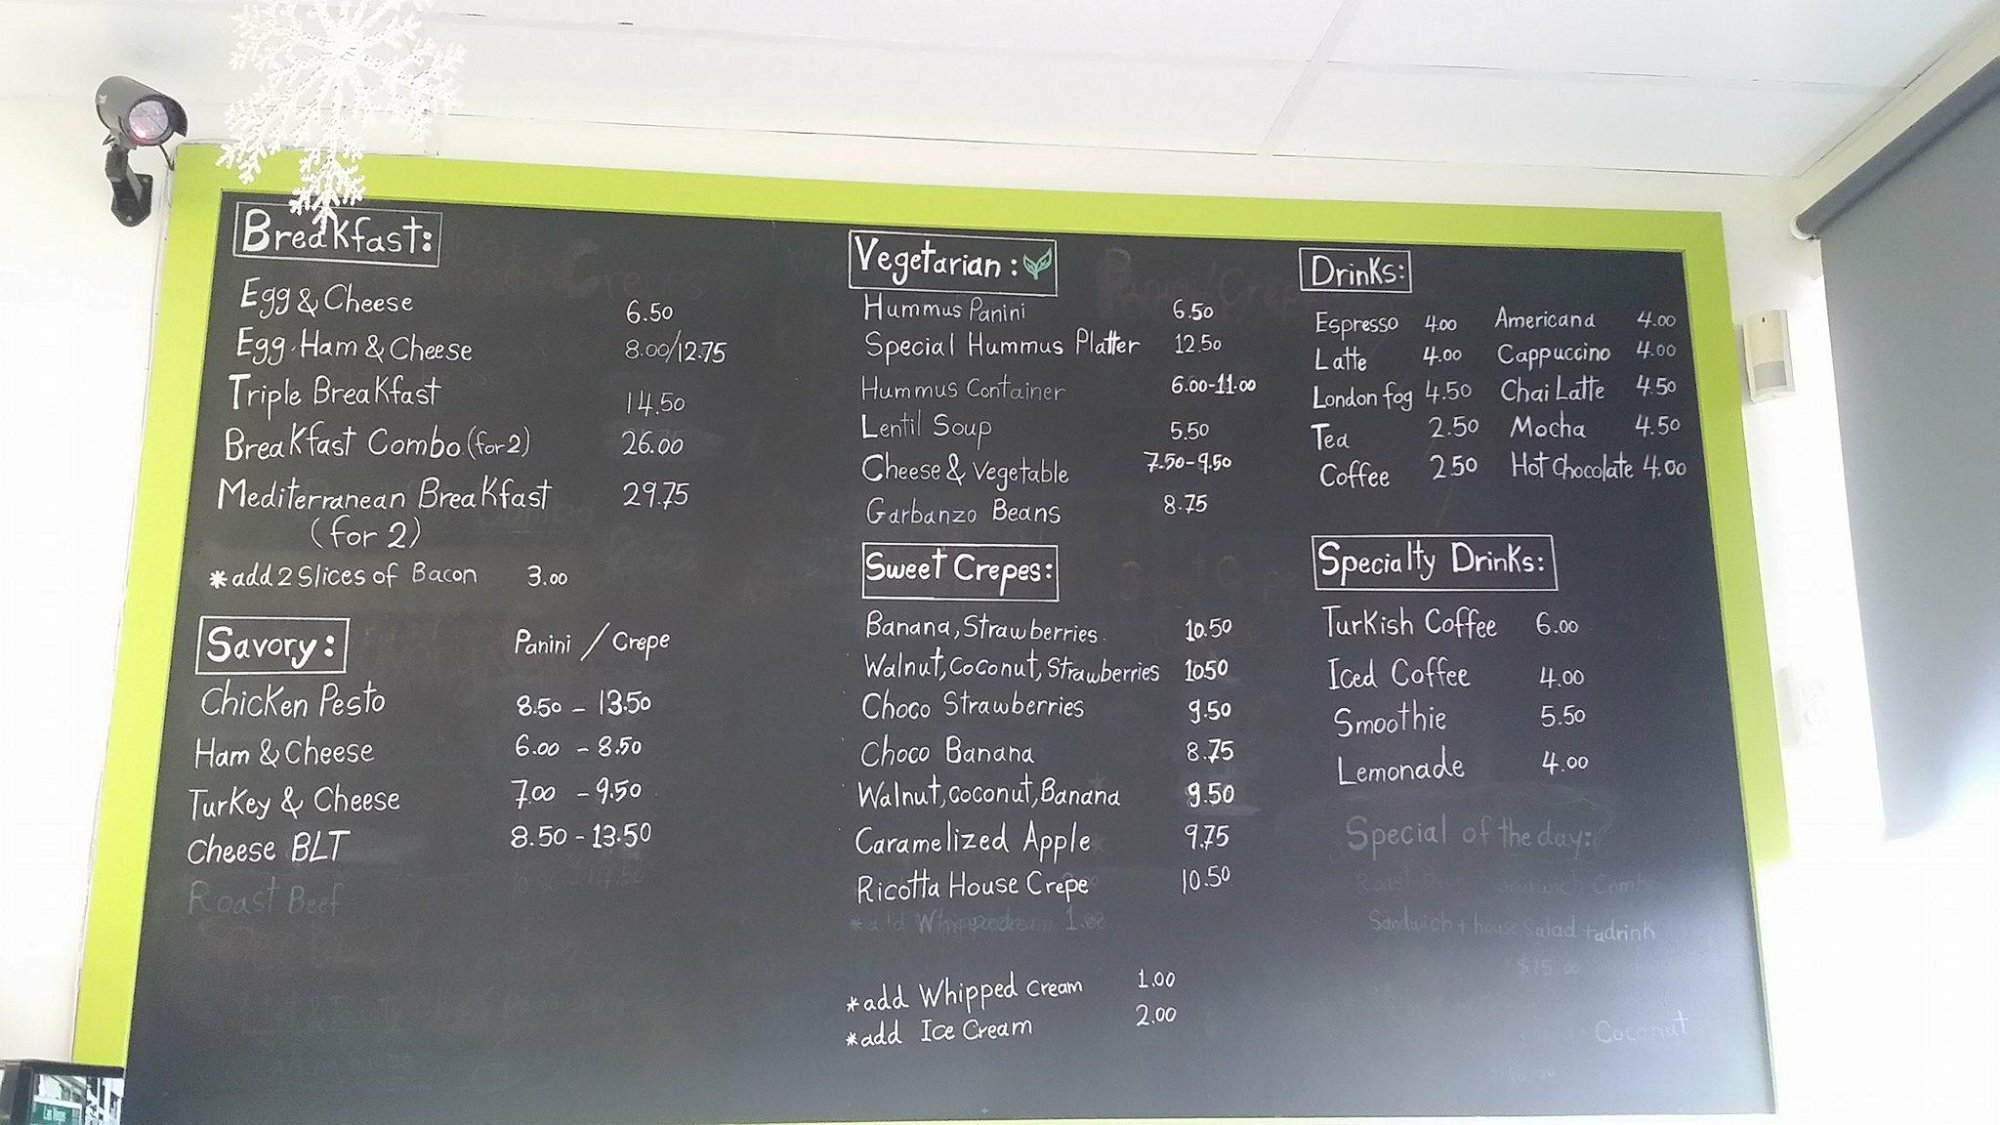 Breakfast:
Egg & Cheese 6.50
Egg Ham & Cheese 8.00/12.75
Triple Breakfast 14.50
Breakfast Combo (for 2) 26.00
Mediterranean Breakfast 29.75
(for 2)
*add 2 Slices of Bacon 3.00
Savory: Panini / Crepe
Chicken Pesto 8.50 - 13.50
Ham & Cheese 6.00 - 8.50
Turkey & Cheese 7.00 - 9.50
Cheese BLT 8.50 - 13.50
Roast Beef
Vegetarian:
Hummus Panini 6.50
Special Hummus Platter 12.50
Hummus Container 6.00-11.00
Lentil Soup 5.50
Cheese & Vegetable 7.50-9.50
Garbanzo Beans 8.75
Sweet Crepes:
Banana, Strawberries 10.50
Walnut, Coconut, Strawberries 10.50
Choco Strawberries 9.50
Choco Banana 8.75
Walnut, coconut, Banana 9.50
Caramelized Apple 9.75
Ricotta House Crepe 10.50
*add Whipped cream 1.00
*add Ice Cream 2.00
Drinks:
Espresso 4.00 Americano 4.00
Latte 4.00 Cappuccino 4.00
London fog 4.50 Chai Latte 4.50
Tea 2.50 Mocha 4.50
Coffee 2.50 Hot chocolate 4.00
Specialty Drinks:
Turkish Coffee 6.00
Iced Coffee 4.00
Smoothie 5.50
Lemonade 4.00
Special of the day:
Sandwich + house Salad + a drink
Coconut